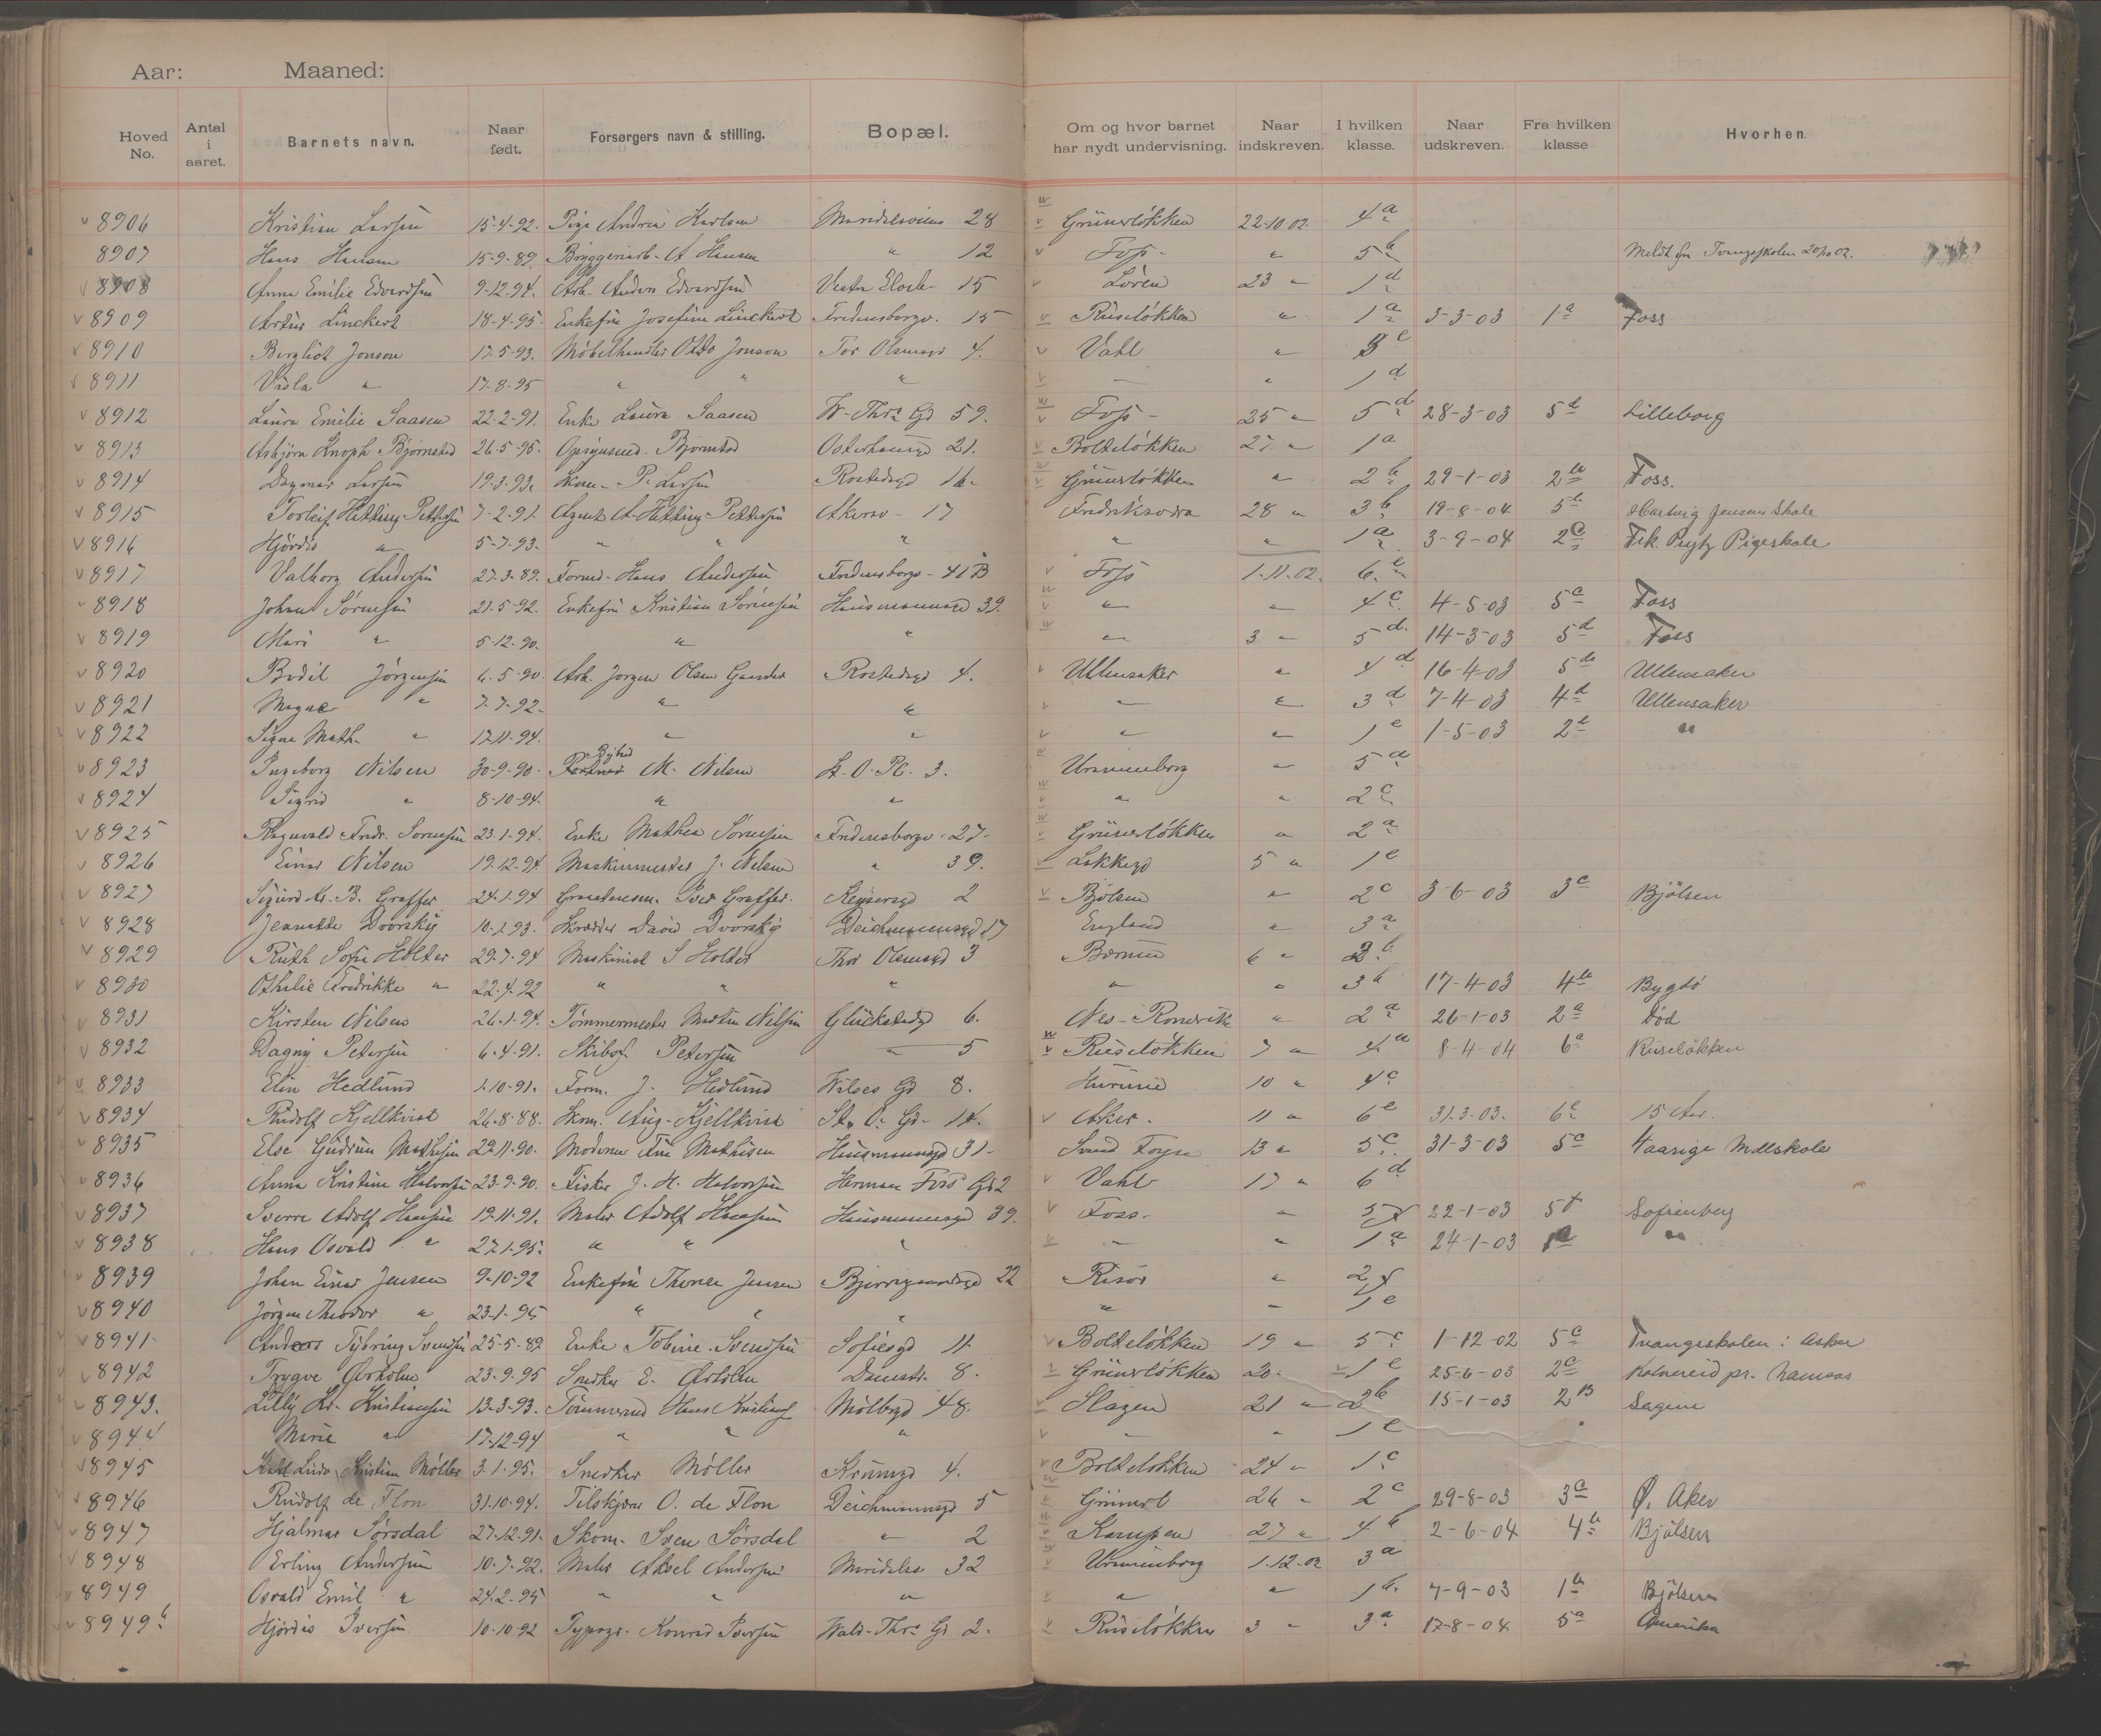 Aar: Maaned:
Hoved No. Antal i aaret. Barnets navn. Naar født. Forsørgers navn & stilling. Bopæl. Om og hvor barnet har nydt undervisning. Naar indskreven. I hvilken klasse. Naar udskreven. Fra hvilken klasse Hvorhen.
8906 Kristian Larsen 15-4-92. Pige Andrea Karlsen 28 Grünerløkken 22-10 02. 4a
8907 Hans Hansen 15-9-89. A Hansen " 12 Foss - " 5b Meldt fra Tvangsskolen
8908 Anna Emilie Edvardsen 9-12-94. Arb. Anders Edvardsen 15 Løren 23 " 1d
8909 Artur Linckert 18-4-95 Enkefru Josefine Linckert Fredensborgv. 15 Ruseløkken " 1a 3-3-03 1a Foss
8910 Bergliot Jonson 17-5-93. Møbelhandler Otto Jonson Tor Olsensgd 4. Vahl "
8911 " 17-8-95 " " " " 1d
8912 Laura Emilie Saasen 22-2-91. Enke Laura Saasen W-Thr. Gd 59. Foss - 25 " 5d 28-3-03 5d Lilleborg
8913 Asbjørn Knoph Bjørnstad 26-5-95. Bjørnstad Osterhausgd 21. Bolteløkken 27 " 1a
8914 Dagmar Larsen 19-3-93. Skom - P. Larsen Rostedsgd 16 Grünerløkken " 2b 29-1-03 2b Foss.
8915 Torleif Hitting-Pettersen 7-2-91 Agent A-Hitting-Pettersen Akersv - 17 28 " 3b 19-8-04 5b Hartvig Jensens Skole
8916 Hjördis " 5-7-93. " " " " " 1a 3-9-04 2c Frk. Pigeskole
8917 Valborg Andersen 27-3-89. Formd - Hans Andersen Fredensborgv - 41B Foss 1-11-02. 6e
8918 Johan Sørensen 21-5-92. Enkefru Kristian Sørensen Hausmannsgd 39. " " 4c 4-5-03 5c Foss
8919 " 5-12-90. " " " 3 " 5d. 14-3-03 5d Foss
8920 Bodil Jörgensen 6-5-90 Arb. Jorgen Olsen Rostedsgd 4. Ullensaker " 4d 16-4-03 5b Ullensaker
8921 Magna " 7-7-92 " " " " 3d 7-4-03 4d Ullensaker
8922 Signe Math. " 17-11-94. " " " " 1e 1-5-03 2b "
8923 Ingeborg Nilsen 30-9-90. Bybud M. Nilsen St. O. Pl. 3. Uranienborg " 5a
8924 Sigrid " 8-10-94. " " " " 2c
8925 Ragnvald Fredr. Sørensen 23-1-94. Enke Mathea Sørensen Fredensborgv. 27. Grünerløkken " 2a
8926 Einar Nilsen 19-12-94. Maskinmester J. Nilsen " 39. Lakkegd 5 " 1e
8927 Sigurd Graffer 24-1-94 Iver Graffer. Keysersgd 2 Bjølsen " 2c 3-6-03 3c Bjölsen
8928 Jeanette Dvorsky 10-1-93. Skrædder David Dvorsky Deichmannsgd 17 England " 3a
8929 Ruth Sofie Holter 29-7-94 Maskinist S Holter Thor Olsensgd 3 Bærum 6 " 2b
8930 Othilie Fredrikke " 22-4-92 " " " " " 3b 17-4-03 4b Bygdö
8931 Kirsten Nilsen 26-1-94. Tømmermester Martin Nilsen Glückstadsgd 6. Nes - " 2a 26-1-03 2a Död
8932 Dagny Petersen 6-4-91. Petersen " 5 Ruseløkken 7 " 4a 8-4-04 6a Ruseløkken
8933 Elin Hedlund 1-10-91. Form. J. Hedlund Wilses Gd 8. 10 " 4c
8934 Rudolf Kjellkvist 26-8-88. Skom. Aug-Kjellkvist St. O. Gd - 14. Aker. 11 " 6e 31.3.03. 6e 15 Aar.
8935 Else Gudrun Mathisen 29-11-90. Mathisen Hausmannsgd 31 - Svend Foyn 13 " 5c. 31-3-03 5c 4aarige Mdlskole
8936 Anna Kristine Halvorsen 23-9-90. Fisker J. H. Halvorsen Herman Foss Gd 2 Vahl 17 " 6d
8937 Sverre Adolf Hansen 19-11-91. Maler Adolf Hansen Hausmannsgd 39. Foss. " 5f 22-1-03 5f Sofienberg
8938 Hans Osvald " 27-1-95. " " " " " 1a 24-1-03 1a "
8939 Johan Einar Jensen 9-10-92 Enkefru Jensen Bjerregaardsgd 22 Risör " 2f
8940 Jörgen Theodor " 23-1-95 " " " " " 1e
8941 Anders Svendsen 25-5-89 Enke Svendsen Sofiesgd 11. Bolteløkken 19 " 5c 1-12-02 5c Tvangsskolen i Asker
8942 Trygve 23-9-95 Snedker E. Damstr. 8. Grünerløkken 20. 1e 25-6-03 2c pr. Namsos
8943. Lilly Kr. Kristiansen 13-3-93. Hans Møllergd 48. Slagen 21 " 2b 15-1-03 2B Sagene
8944 Marie " 17-12-94 " " " " " 1e
8945 Kristian Møller 3-1-95. Snedker Møller Krumgd 4. Bolteløkken 24 " 1c
8946 Rudolf de Flon 31-10-94. O. de Flon Deichmannsgd 5 Grünerl 26 " 2c 29-8-03 3c Ø. Aker
8947 Hjalmar Sørsdal 27-12-91. Skom. Sven Sørsdal " 2 Kampen 27 " 4b 2-6-04 4b Bjölsen
8948 Erling Andersen 10-7-92. Maler Aksel Andersen 32 Uranienborg 1.12-02 3a
8949 Osvald Emil " 24-2-95 " " " " " 1b. 7-9-03 1b Bjölsen
8949b Hjördis Iversen 10-10-92 Typogr. Konrad Iversen Wald-Thr. Gd 2. Ruseløkken 3 " 3a 17-8-04 5a Amerika